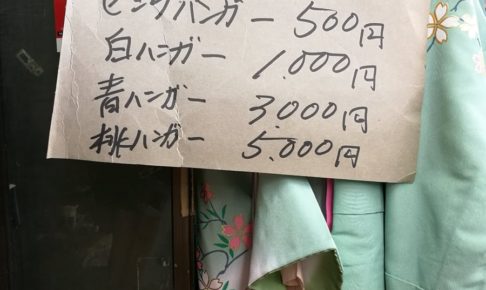 ピンクハンガー 500円
白ハンガー 1.000円
青ハンガー 3.000円
桃ハンガー 5.000円